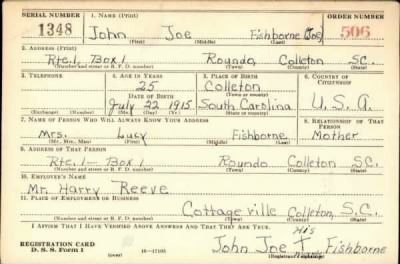 SERIAL NUMBER 1. NAME (Print) ORDER NUMBER
1348 John Joe Fishborne (Joe) 506
(First) (Middle) (Last)
2. ADDRESS (Print)
Rte. 1, Box 1 Round o, Colleton S.C.
(Number and street or R. F. D. number) (Town) (County) (State)
3. TELEPHONE 4. AGE IN YEARS 5. PLACE OF BIRTH 6. COUNTRY OF CITIZENSHIP
25 Colleton
DATE OF BIRTH (Town or county)
July 22 1915 South Carolina U.S.A
(Exchange) (Number) (Mo.) (Day) (Yr.) (State or country)
7. NAME OF PERSON WHO WILL ALWAYS KNOW YOUR ADDRESS 8. RELATIONSHIP OF THAT PERSON
Mrs. Lucy Fishborne Mother
(Mr., Mrs., Miss) (First) (Middle) (Last)
9. ADDRESS OF THAT PERSON
Rte. 1 - Box 1 Round o Colleton S.C.
(Number and street or R. F. D. number) (Town) (County) (State)
10. EMPLOYER'S NAME
Mr. Harry Reeve
11. PLACE OF EMPLOYMENT OR BUSINESS
Cottageville Colleton, S.C.
(Number and street or R. F. D. number) (Town) (County) (State)
I AFFIRM THAT I HAVE VERIFIED ABOVE ANSWERS AND THAT THEY ARE TRUE.
His
John Joe X Fishborne
REGISTRATION CARD
D. S. S. Form 1 (over) 16—17105 (Registrant's signature)